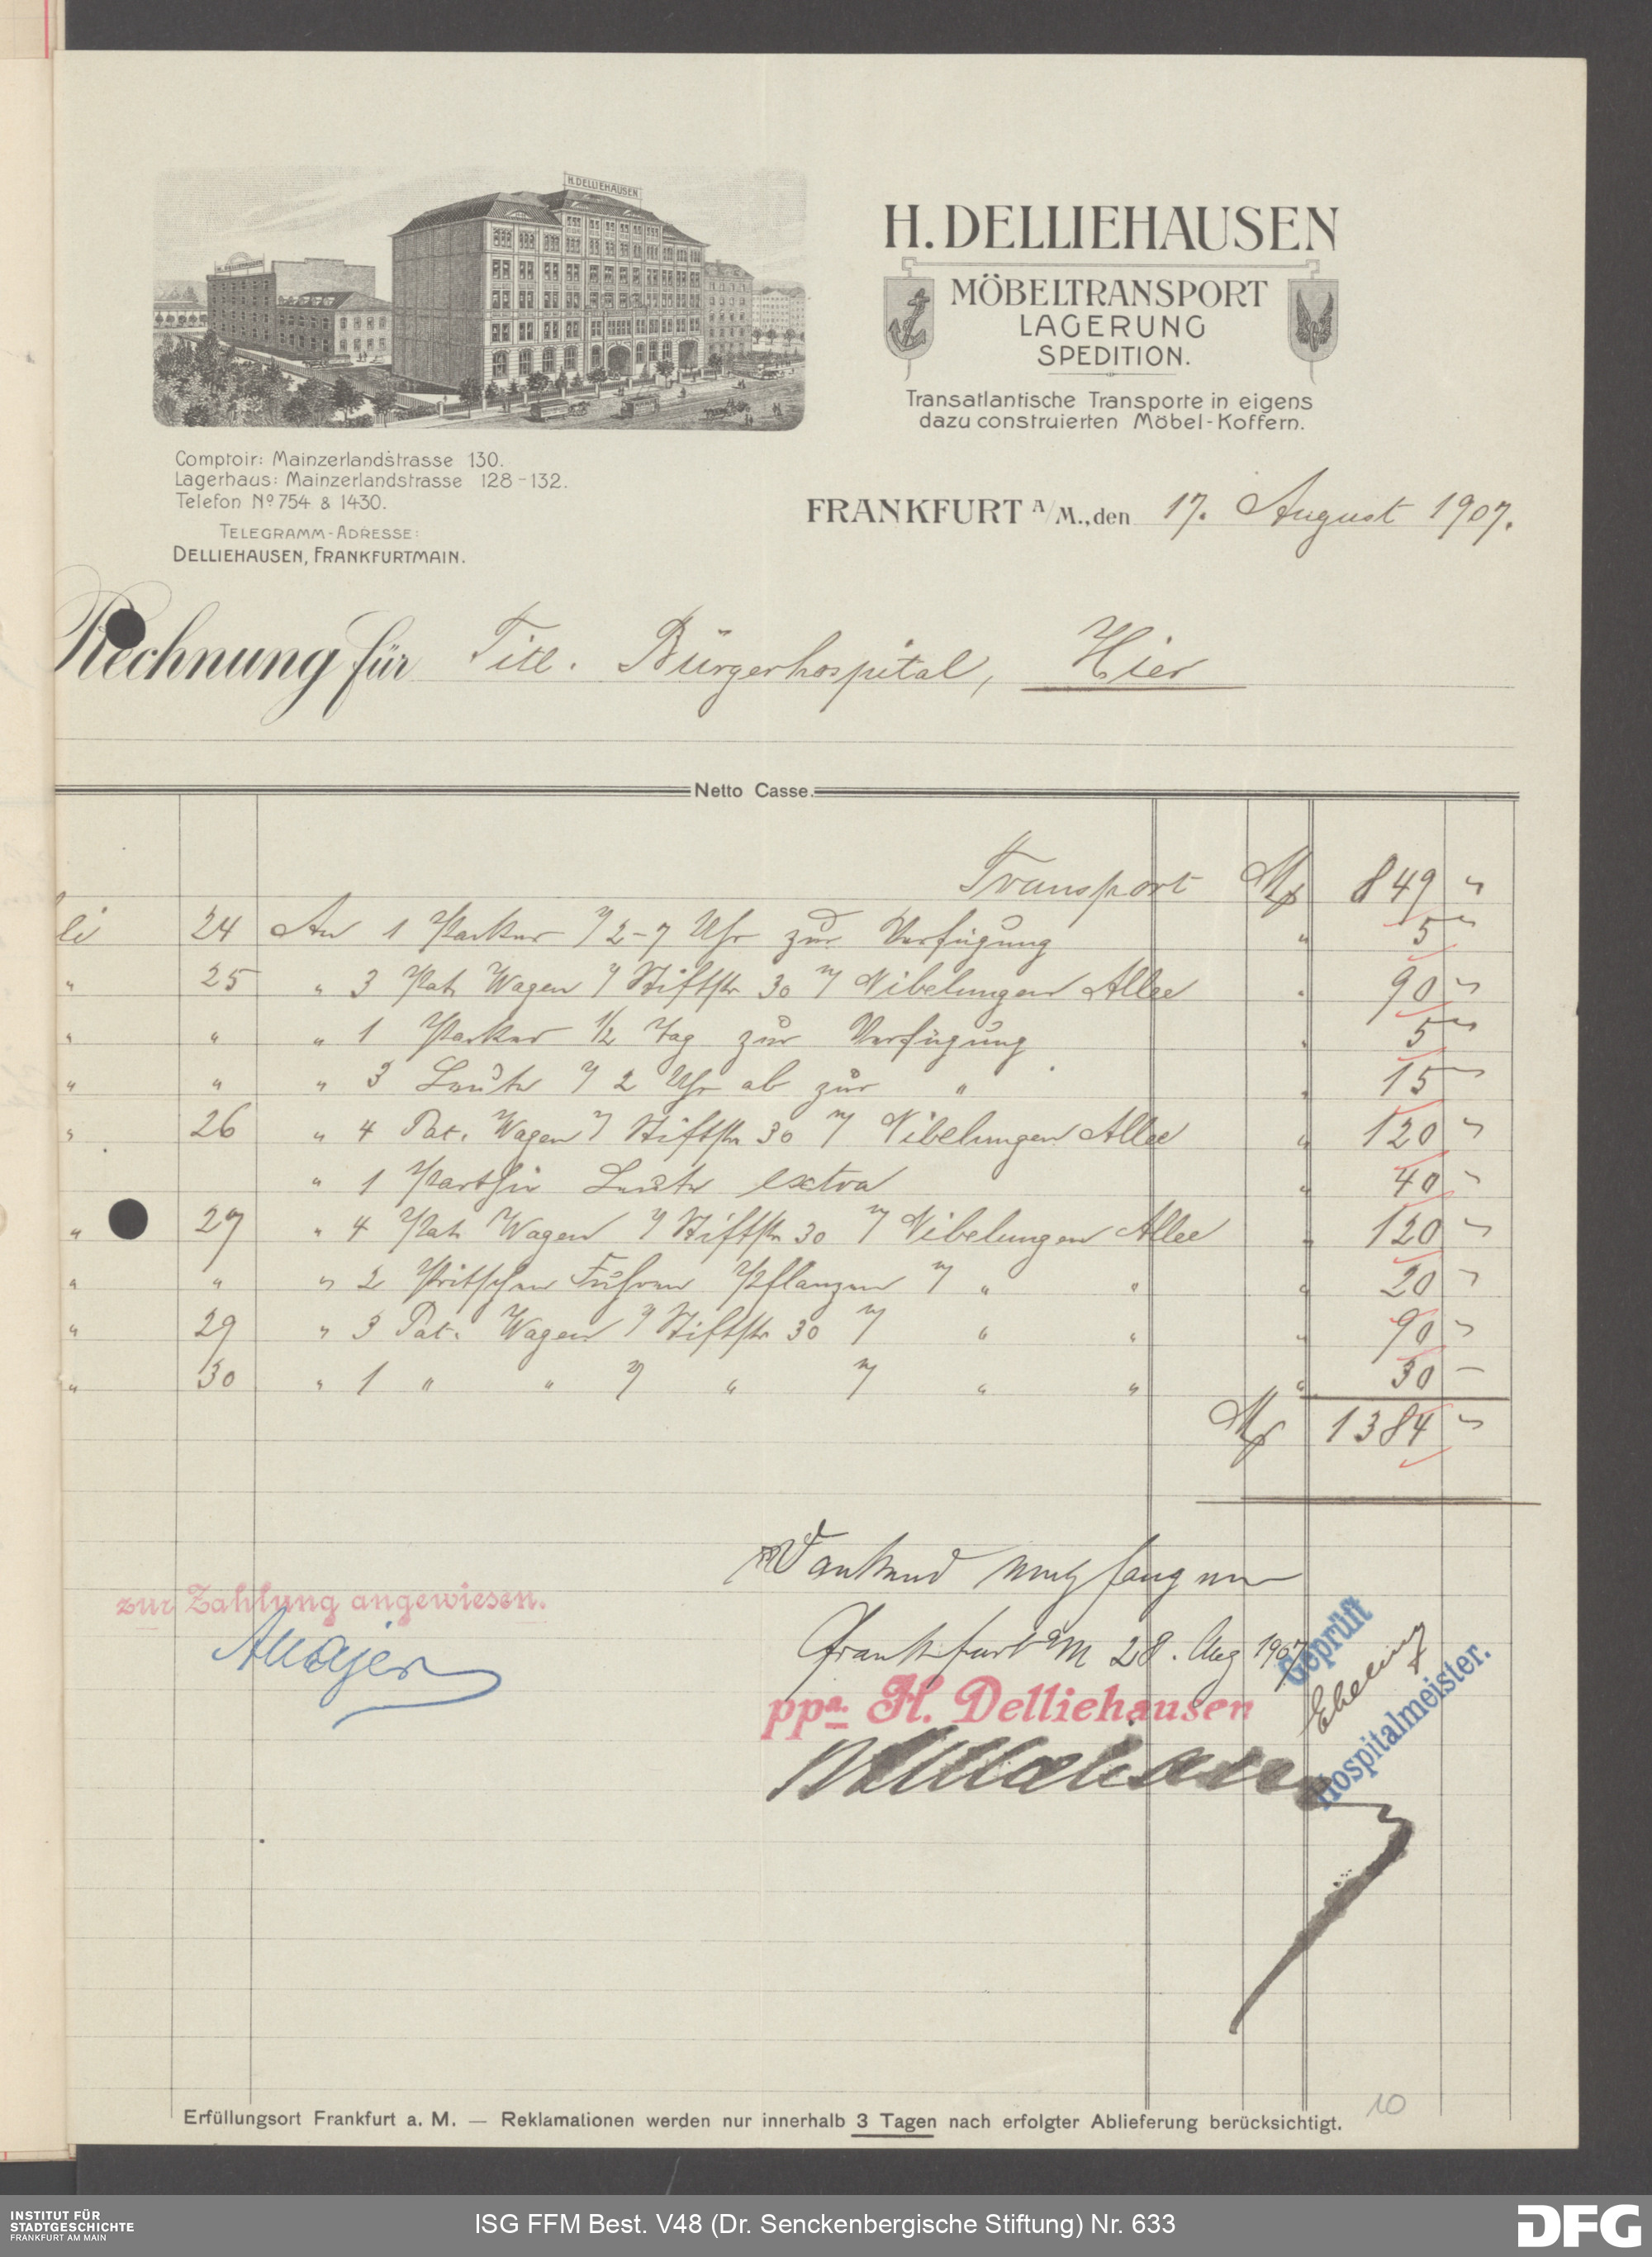 H. DELLIEHAUSEN
H. DELLIEHAUSEN
H. DELLIEHAUSEN
MÖBELTRANSPORT
LAGERUNG
SPEDITION.
Transatlantische Transporte in eigens
dazu construierten Möbel-Koffern.
Comptoir: Mainzerlandstrasse 130.
Lagerhaus: Mainzerlandstrasse 128-132.
Telefon Nº 754 & 1430.
TELEGRAMM-ADRESSE:
DELLIEHAUSEN, FRANKFURTMAIN.
FRANKFURT A/M., den 17. August 1907.
Rechnung für Titl. Bürgerhospital, Hier
Netto Casse.
Transport M 849 "
li 24 An 1 Packer v 2-7 Uhr zur Verfügung " 5 "
" 25 " 3 Pat. Wagen v Stiftstr 30 n/ Nibelungen Allee " 90 "
" " " 1 Packer 1/2 Tag zur Verfügung " 5 "
" " " 3 Leute v 2 Uhr ab zur " " 15 "
" 26 " 4 Pat. Wagen v Stiftstr 30 n/ Nibelungen Allee " 120 "
" 1 Parthie Leute extra " 40 "
" 27 " 4 Pat. Wagen v Stiftstr 30 n/ Nibelungen Allee " 120 "
" " " 2 Pritschen Fuhren Pflanzen n/ " " " 20 "
" 29 " 3 Pat. Wagen v Stiftstr 30 n/ " " " 90 "
" 30 " 1 " " v " n/ " " " 30 —
M 1384 "
Dankend empfangen
zur Zahlung angewiesen.
Frankfurt a/M 28. Aug 1907
Geprüft
ppa. H. Delliehausen
Hospitalmeister.
Erfüllungsort Frankfurt a. M. — Reklamationen werden nur innerhalb 3 Tagen nach erfolgter Ablieferung berücksichtigt.
10
INSTITUT FÜR
STADTGESCHICHTE
FRANKFURT AM MAIN
ISG FFM Best. V48 (Dr. Senckenbergische Stiftung) Nr. 633
DFG